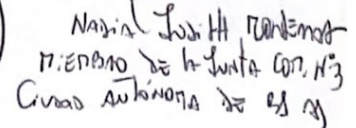 Nadia Judith Montenegro
Miembro de la Junta Com. N°3
Ciudad Autónoma de Bs As